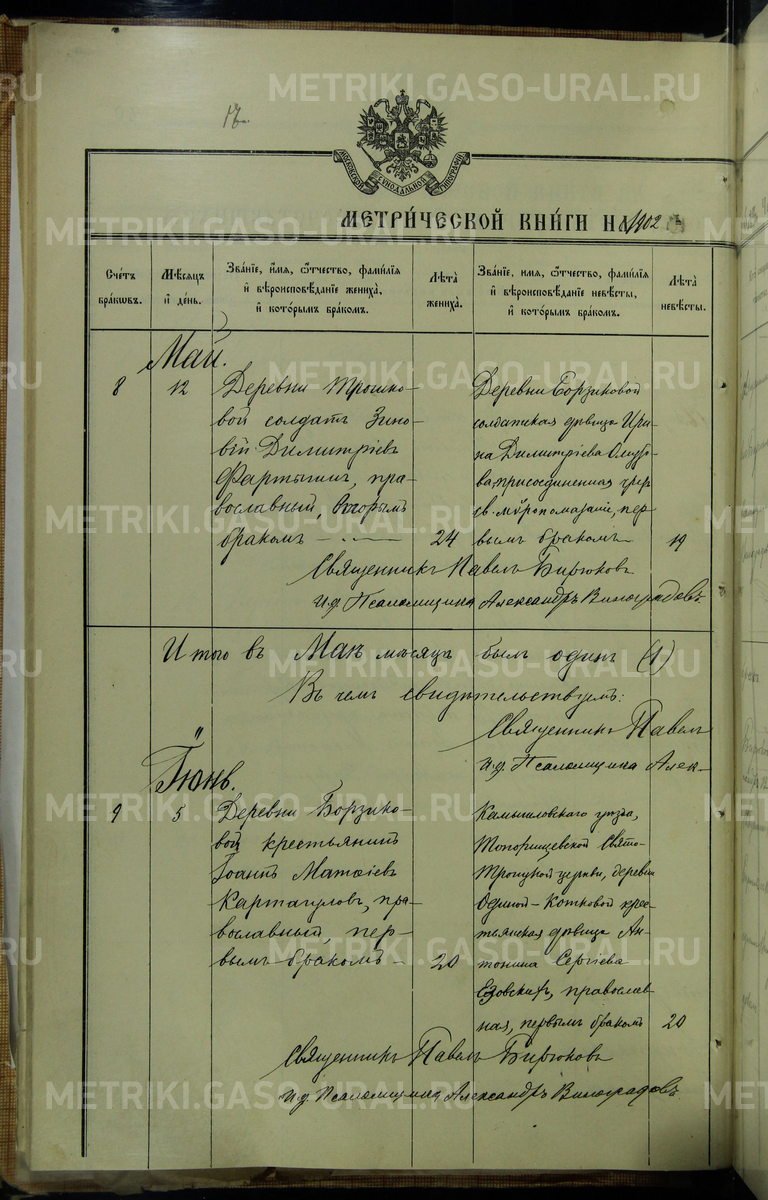 17.
МОСКОВСКОЙ СѴНОДАЛЬНОЙ ТИПОГРАФІИ
МЕТРИ́ЧЕСКОЙ КНИ́ГИ НА 1902
Счетъ бра́ковъ.
Мѣсяцъ и день.
Зва́ніе, и́мя, ѻ҆́тчество, фами́лія и вѣроисповѣ́даніе жениха̀, и кото́рымъ бра́комъ.
Лѣта жениха̀.
Зва́ніе, и́мя, ѻ҆́тчество, фами́лія и вѣроисповѣ́даніе невѣ́сты, и кото́рымъ бра́комъ.
Лѣта невѣ́сты.
Май.
8
12
Деревни Трошко-
вой солдатъ Зино-
вій Димитріевъ
Фартыгинъ, пра-
вославный, вторымъ
бракомъ
24
Деревни Борзиковой
солдатская дѣвица Ири-
на Димитріева
присоединенная чрез
св. мѵропомазаніе, пер
вымъ бракомъ
19
Священникъ Павелъ Бирюковъ
И.д. Псаломщика Александръ Виноградовъ.
Итого въ Маѣ мѣсяцѣ былъ одинъ (1)
Въ чемъ свидѣтельствуемъ:
Священникъ Павелъ
И.д. Псаломщика Алек-
Іюнь.
9
5
Деревни Борзико-
вой крестьянинъ
Іоаннъ Матѳіевъ
Картагуловъ, пра-
вославный, пер-
вымъ бракомъ
20
Камышловскаго уѣзда,
Топорищевской Свято-
Троицкой церкви, деревни
Одиной-Котковой крес
тьянская дѣвица Ан-
тонина Сергіева
Езовскихъ, православ
ная, первымъ бракомъ
20
Священникъ Павелъ Бирюковъ
И.д. Псаломщика Александръ Виноградовъ.
METRIKI.GASO-URAL.RU